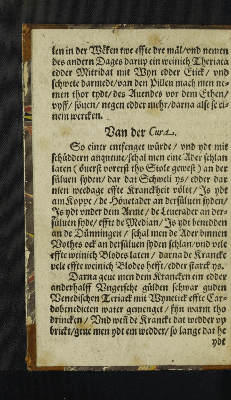 len in der Weken twe effte dre mål/vnd nemen
des andern Dages darup ein weinich Theriata
edder Mitridat mit Wyn edder Etick/ vnd
schwete darmede/van den Pillen mach men ne-
men thor tydt/ des Auendes vor dem Ethen/
vyff/ söuen/ negen edder mehr/darna alse se ei-
nem wercken.
Van der Cura.
So einer entfenget würde/ vnd ydt mit
schüddern anquenne/schal men eine Ader schlan
laten ( öuerst vorerst tho Stole gewest ) an der
sülueu syden/ dar dat Schweli ys/ edder dar
nien wedage effte Kranckheit völet/ Js ydt
am Koppe/ de Höuetader an dersüluen syden/
Js ydt vnder dem Arme/ de Leuerader an der-
süluen syde/ effte de Median/ Js ydt beneddden
an de Dünninger/ schal men de Ader binnen
Vothes ock an dersüluen syden schlan/vnd vele
effte weinich Blodes laten/ darna de Krancke
vele effte weinich Blodes hefft/edder starck ys.
Darna geue men dem Krancken ein edder
anderhalff Vngersche gülden schwar guden
Venedischen Teriack mit Wynetick effte Car-
dobenedicten water gemenget/ fyn warm tho
drincken/ Vnd weñ de Krancke dat wedder vp
brickt/geue men ydt em wedder/ so lange dat he
ydt